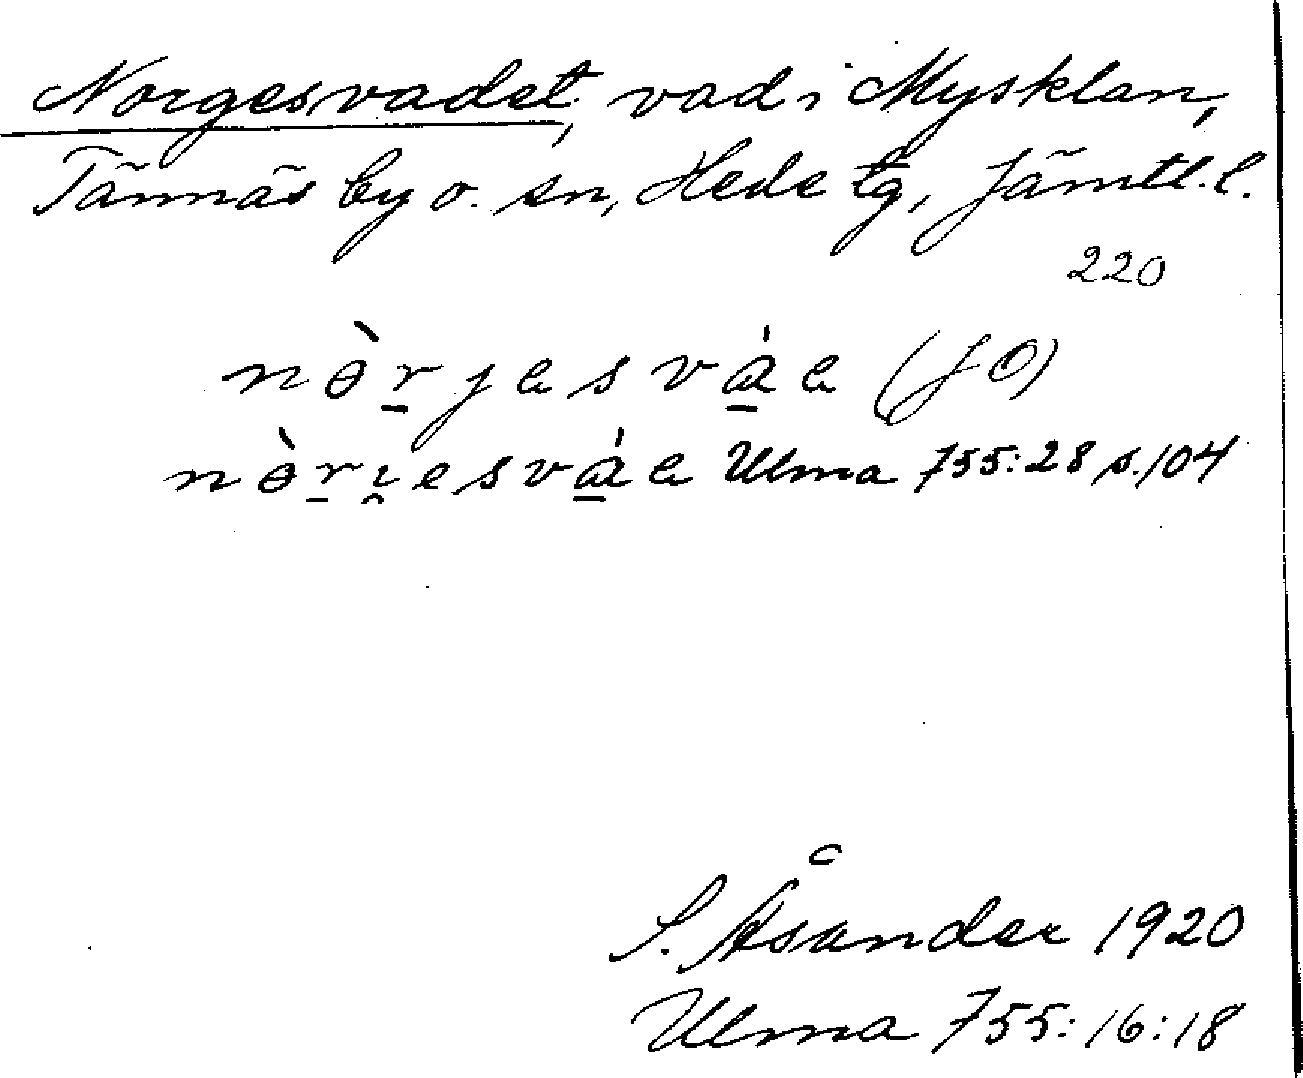 Norgesvadet, vad i Mysklan,
Tännäs by o. sn, Hede tg, Jämtl. l.
220
nɵ̀r̲jesvá̲e (JO)
nɵ̀r̲i̯esvá̲e Ulma 755:28 s. 104
S. Åsander 1920
Ulma 755:16:18